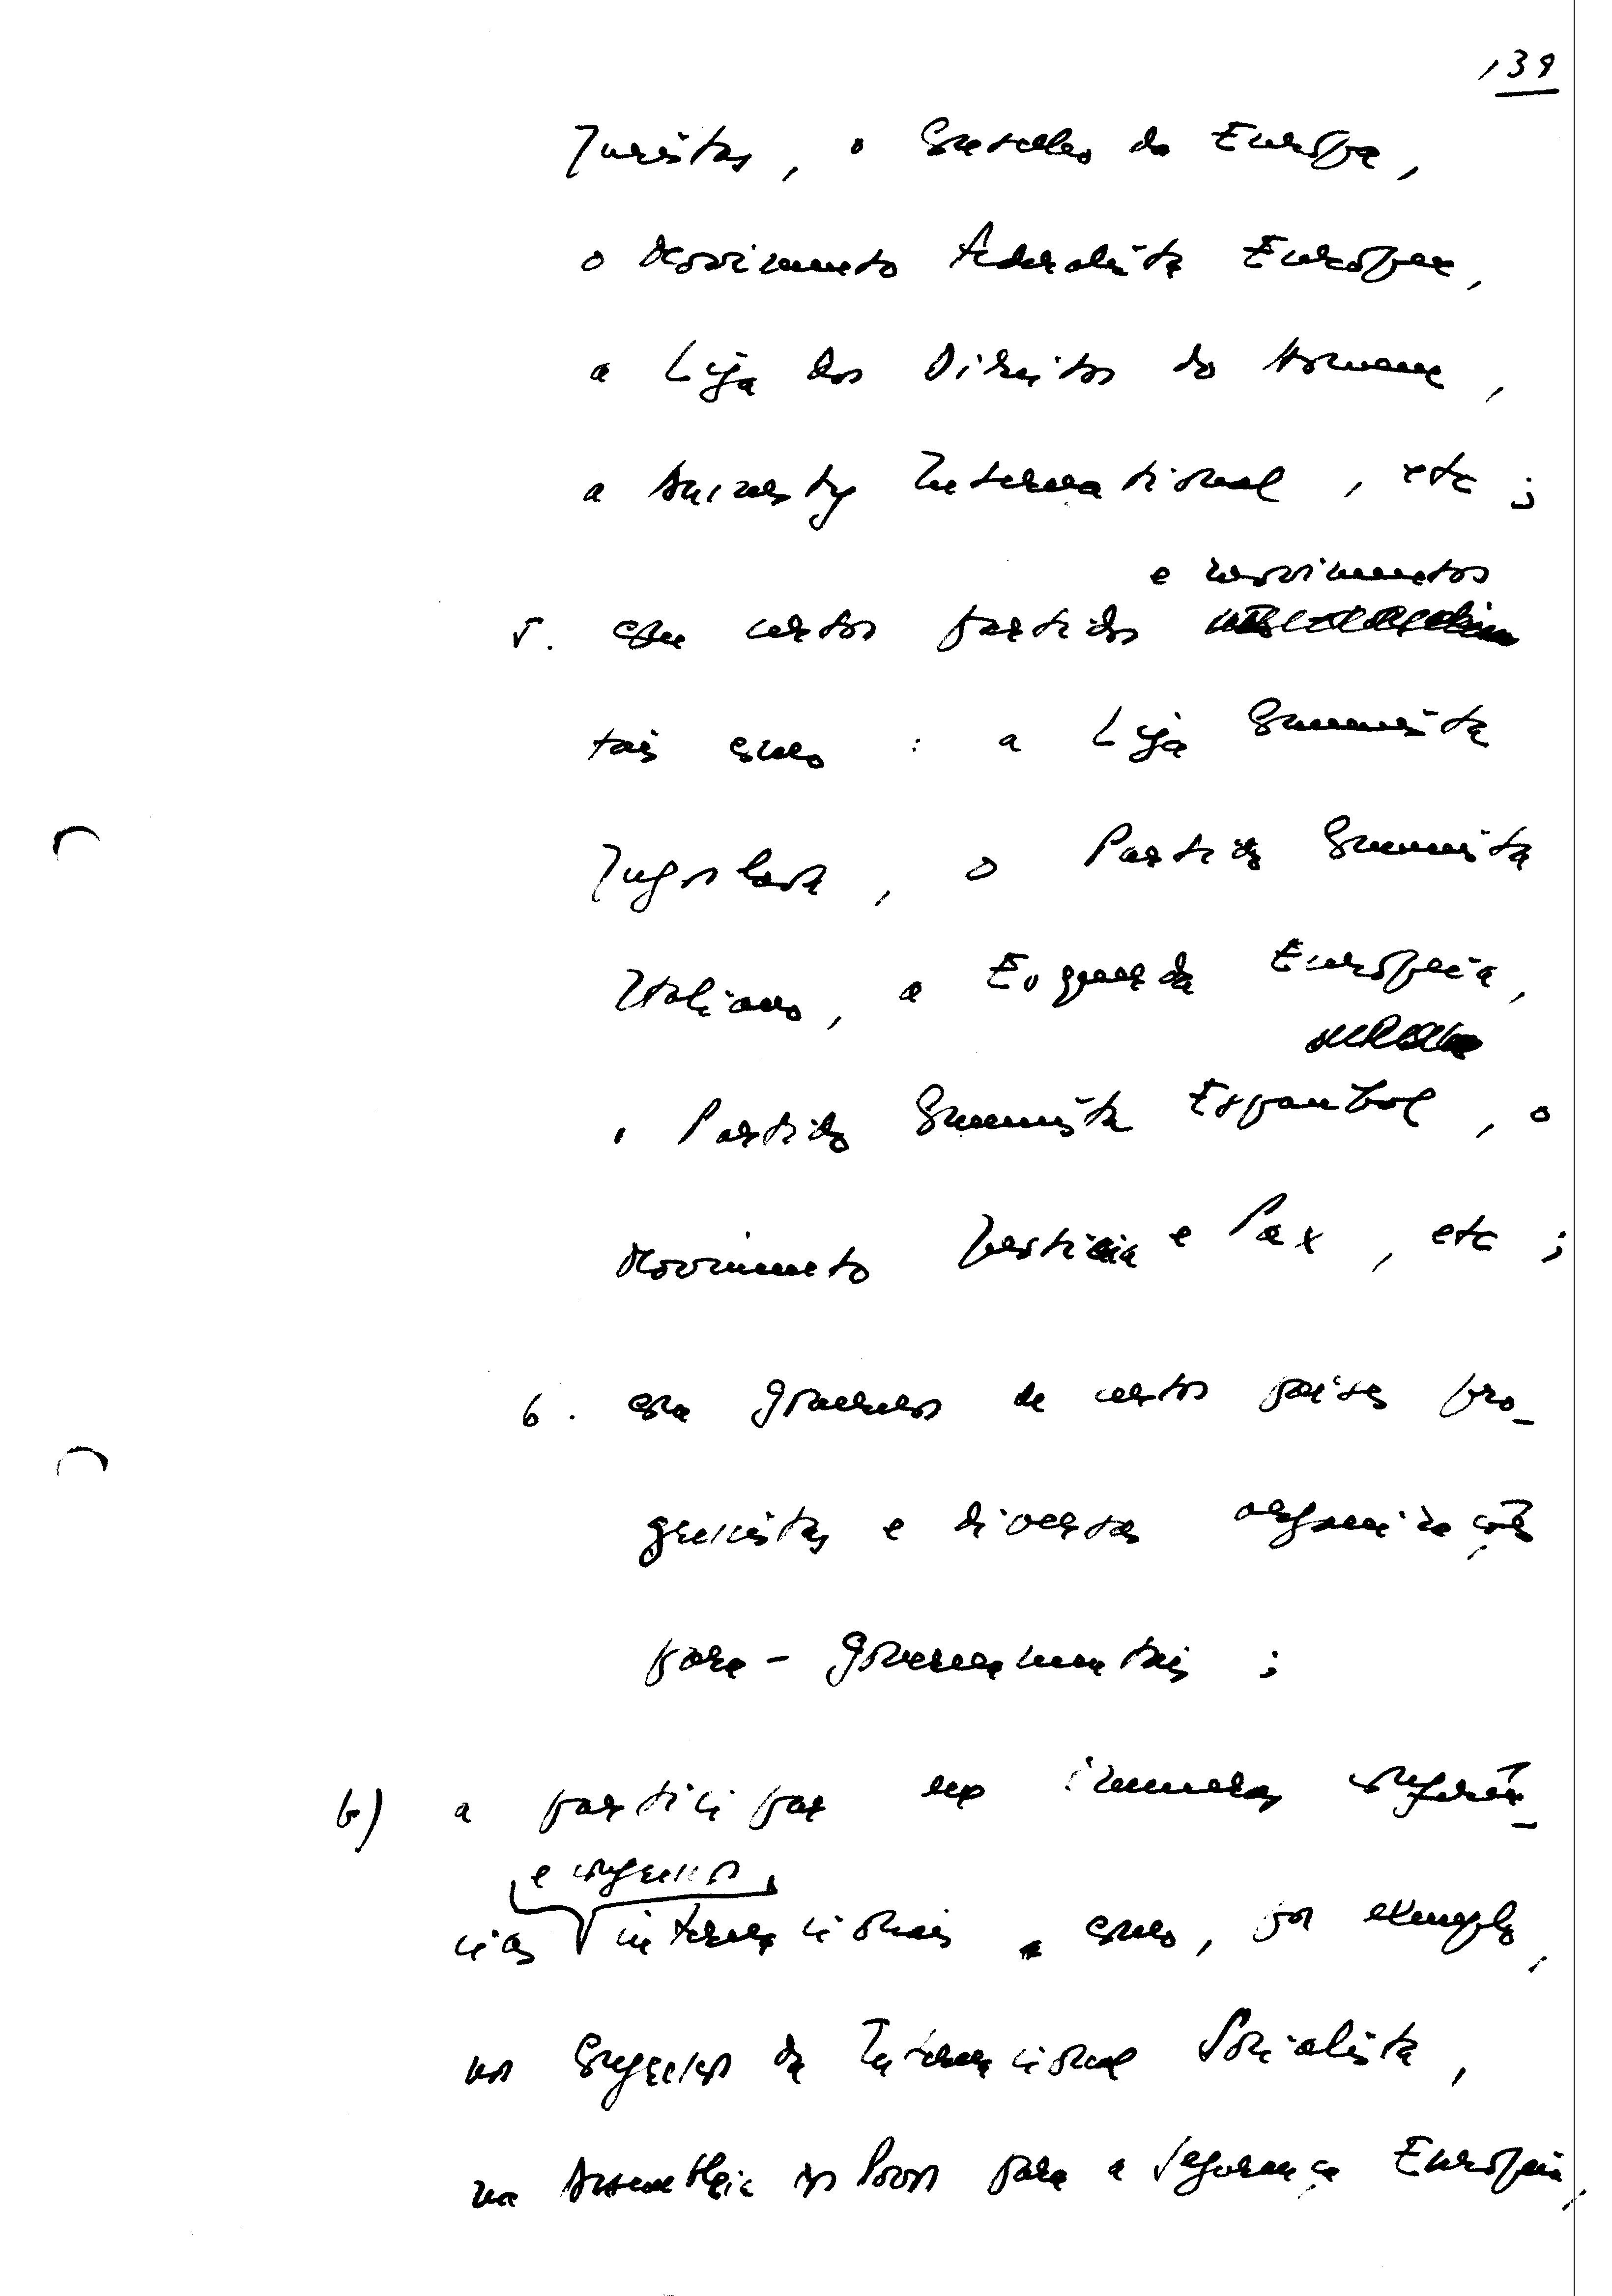 139
Juristas, o Conselho da Europa,
o Movimento Federalista Europeu,
a Liga dos Direitos do Homem,
a Amnesty International, etc;
e movimentos
5. com certos partidos
tais como : a Liga Comunista
Jugoslava, o Partido Comunista
Italiano, a Esquerda Europeia,
o Partido Comunista Espanhol, o
Movimento Justicia e Pax, etc;
6. com governos de certos países pro-
gressistas e diversas organizações
para-governamentais ;
b) a participar em inumeras conferên-
e congressos
cias internacionais como, por exemplo,
no Congresso da Internacional Socialista,
na Assembleia dos Povos para a Segurança Europeia,